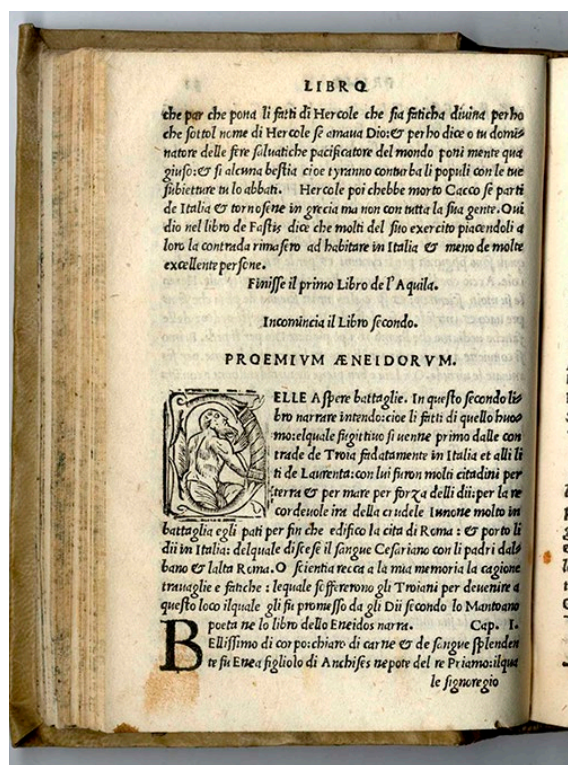 LIBRO
che par che pona li fatti di Hercole che sia faticha diuina perho
che sottol nome di Hercole se amaua Dio:& perho dice o tu domi-
natore delle fere saluatiche pacificatore del mondo poni mente qua
giuso:& si alcuna bestia cioe tyranno conturba li populi con le tue
subietture tu lo abbati. Hercole poi chebbe morto Cacco se parti
de Italia & tornosene in grecia ma non con tutta la sua gente. Oui
dio nel libro de Fastis dice che molti del suo exercito piacendoli a
loro la contrada rimasero ad habitare in Italia & meno de molte
excellente persone.
Finisse il primo Libro de l'Aquila.
Incomincia il Libro secondo.
PROEMIVM ÆNEIDORVM.
ELLE Aspere battaglie. In questo secondo li-
bro narrare intendo:cioe li fatti di quello huo-
mo:elquale fugittiuo si uenne primo dalle con
trade de Troia fadatamente in Italia et alli li
ti de Laurenta:con lui furon molti citadini per
terra & per mare per forza delli dii:per la re
cordeuole ira della crudele Iunone molto in
battaglia egli pati per fin che edifico la cita di Roma : & porto li
dii in Italia: delquale discese il sangue Cesariano con li padri dal-
bano & lalta Roma. O scientia recca a la mia memoria la cagione
trauaglie e fatiche : lequale sofferono gli Troiani per deuenire a
questo loco ilquale gli fu promesso da gli Dii secondo lo Mantoano
poeta ne lo libro dello Eneidos narra. Cap. I.
BEllissimo di corpo:chiaro di carne & de sangue splenden
te fu Enea figliolo di Anchises nepote del re Priamo:ilqua
le signoregio